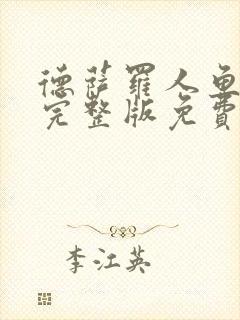 德萨罗人鱼
完整版免费
李江英